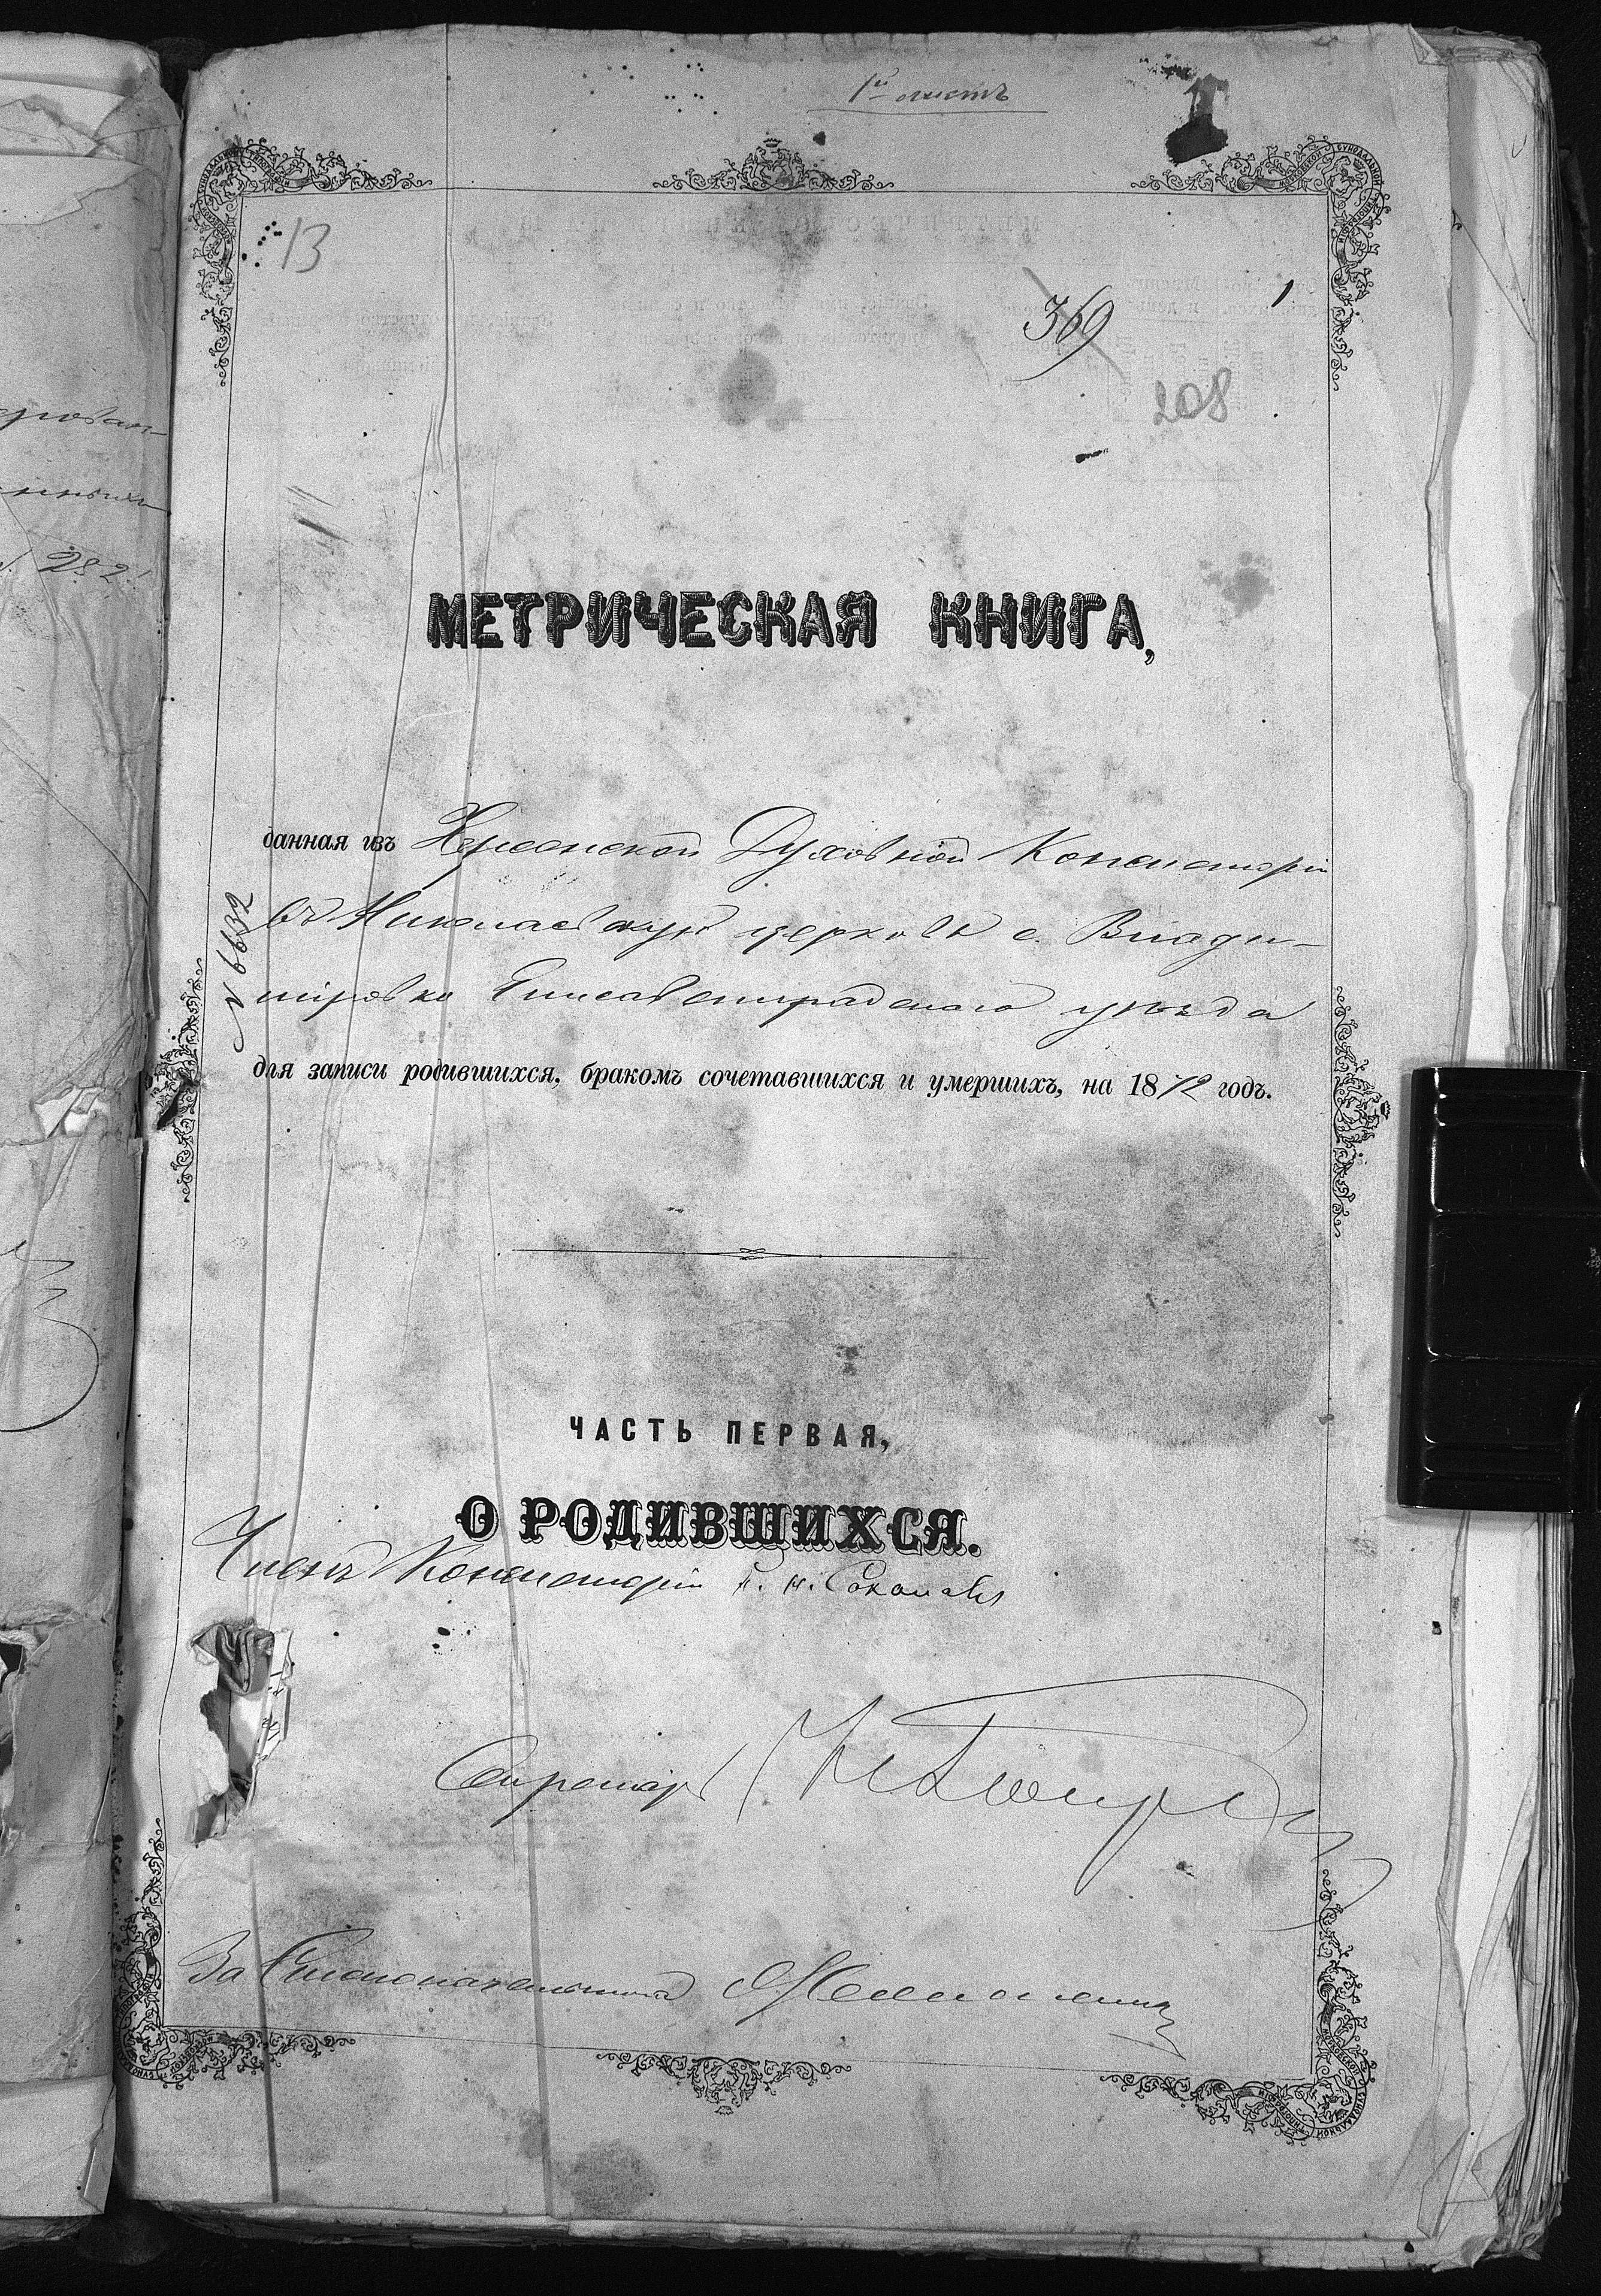 1й листъ
13
369
1
208
МЕТРИЧЕСКАЯ КНИГА,
данная изъ Херсонской Духовной Консисторіи
въ Николаевскую церковь с. Влади-
міровки Елисаветградскаго уѣзда
N 6632
для записи родившихся, бракомъ сочетавшихся и умершихъ, на 1872 годъ.
ЧАСТЬ ПЕРВАЯ,
О РОДИВШИХСЯ.
Членъ Консисторіи
Секретарь
За Столоначальника
282